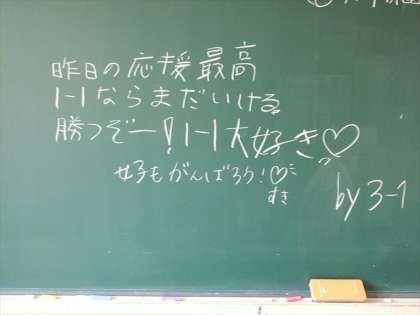 昨日の応援最高
1-1ならまだいける。
勝つぞー!1-1大好き♡
女子もがんばろう!♡
すき
by 3-1